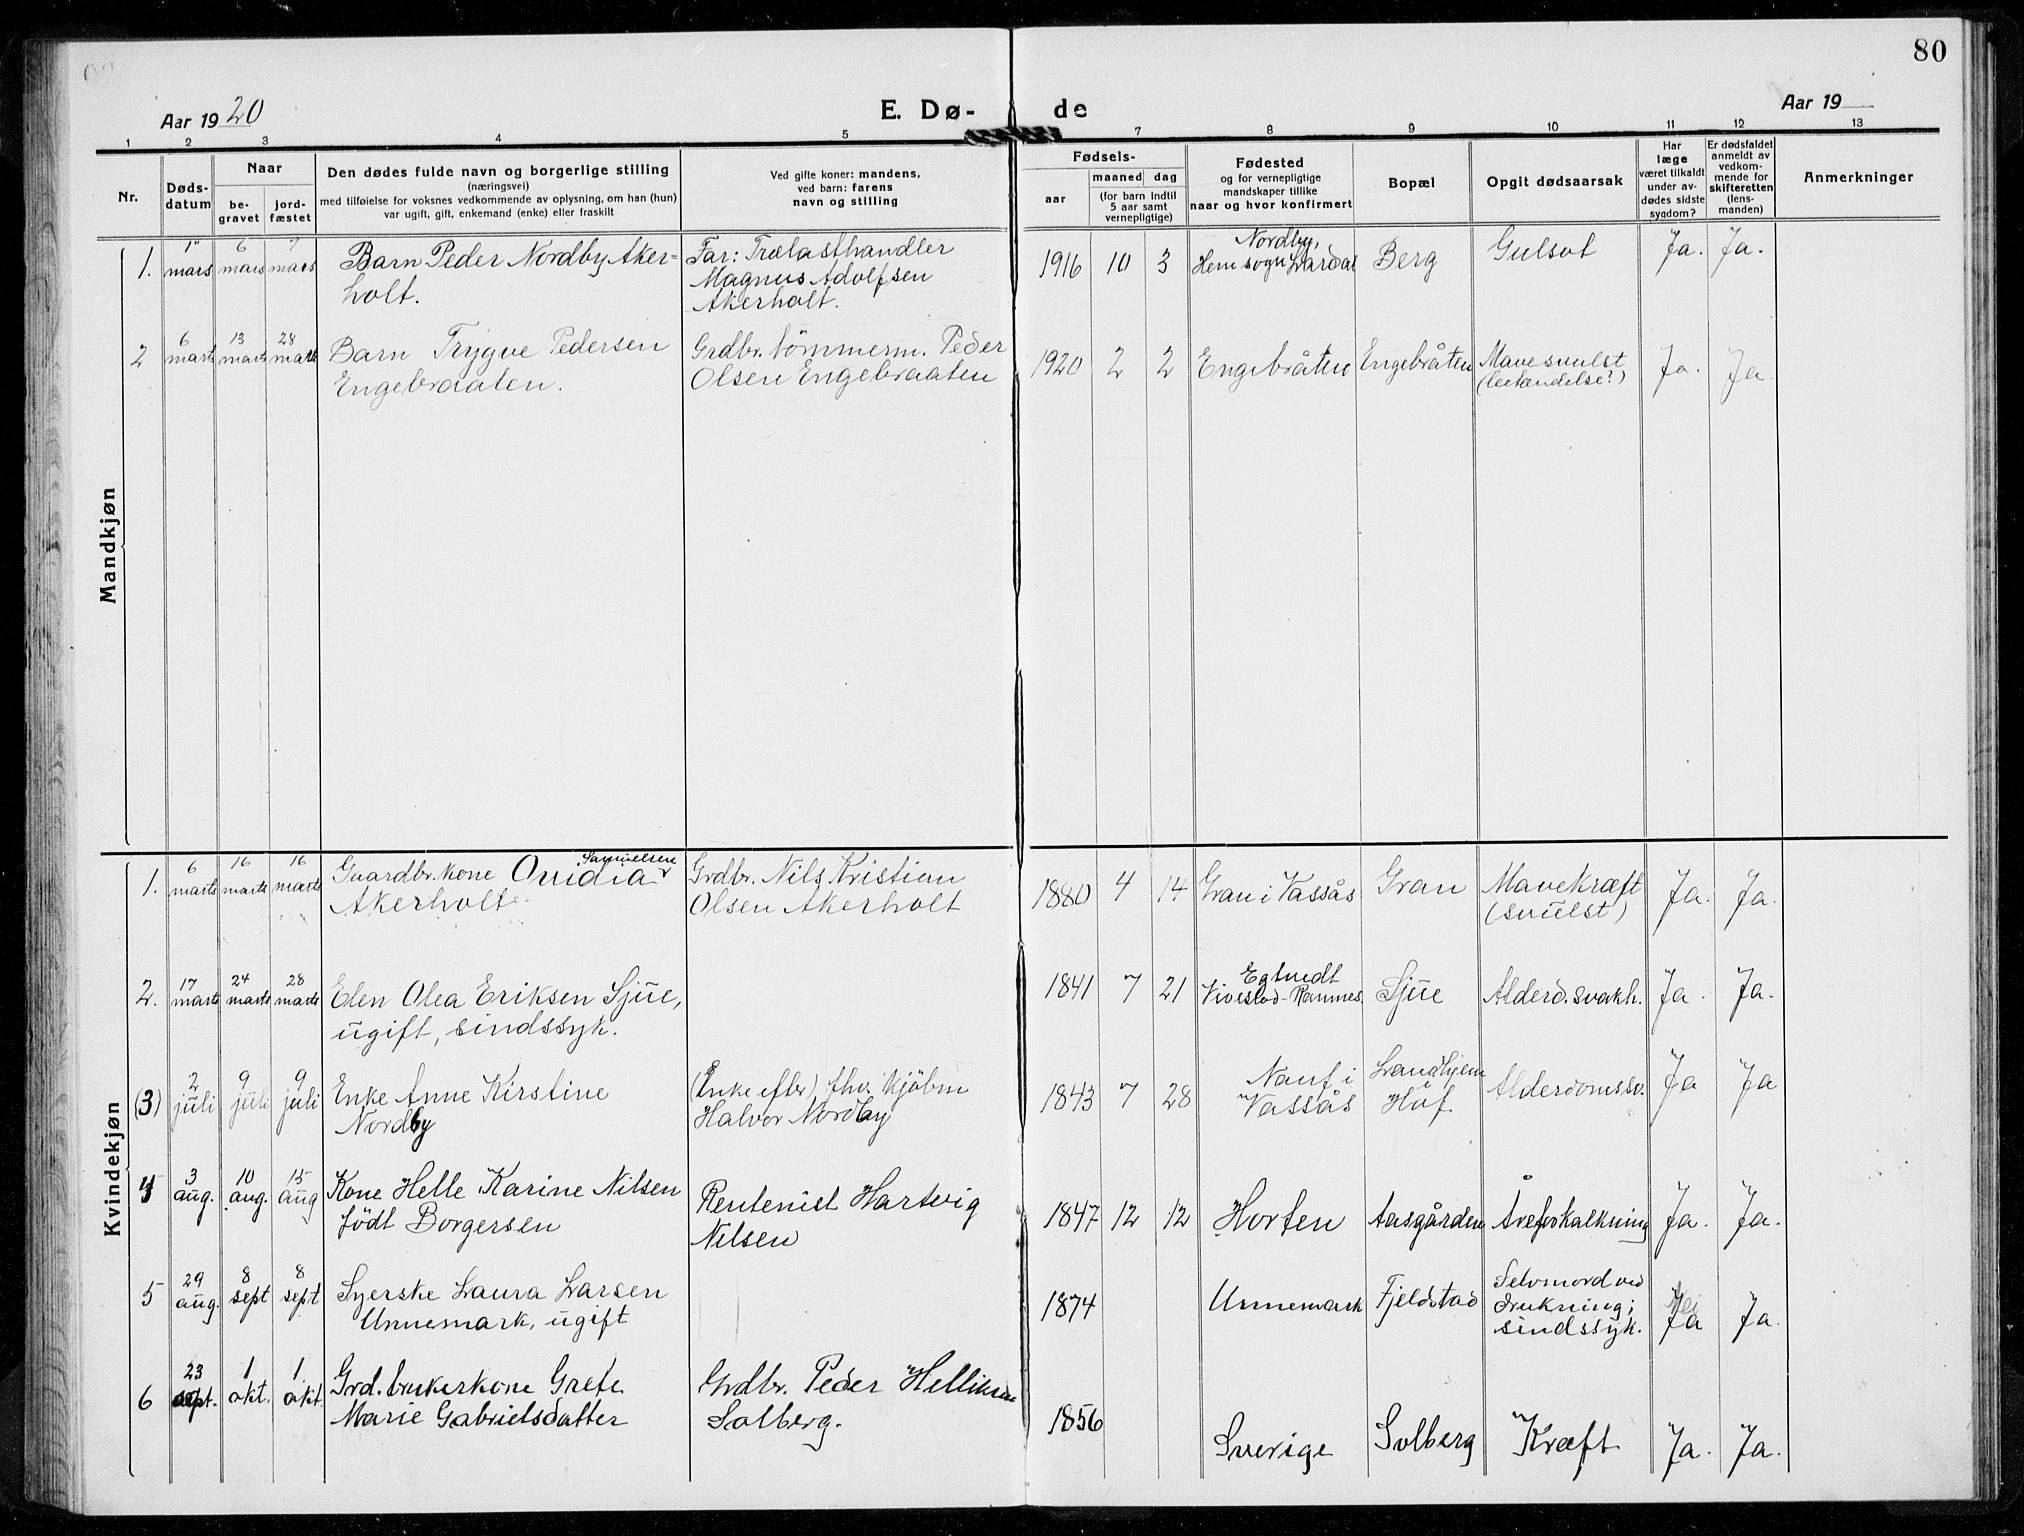 80
Aar 1920
E. Dø-
de
Aar 19
1 2 3 4 5 7 8 9 10 11 12 13
Nr.
Døds-
datum
Naar
be-
gravet
jord-
fæstet
Den dødes fulde navn og borgerlige stilling
(næringsvei)
med tilføielse for voksnes vedkommende av oplysning, om han (hun)
var ugift, gift, enkemand (enke) eller fraskilt
Ved gifte koner: mandens,
ved barn: farens
navn og stilling
Fødsels-
aar
maaned dag
(for barn indtil
5 aar samt
vernepligtige)
Fødested
og for vernepligtige
mandskaper tillike
naar og hvor konfirmert
Bopæl
Opgit dødsaarsak
Har
læge
været tilkaldt
under av-
dødes sidste
sygdom?
Er dødsfaldet
anmeldt av
vedkom-
mende for
skifteretten
(lens-
manden)
Anmerkninger
Mandkjøn
1.
1
mars
6
mars
7
mars
Barn Peder Nordby Aker=
holt.
Far: Trælasthandler
Magnus Adolfsen
Akerholt.
1916 10 3
Nordby,
Hem sogn Lardal
Berg
Gulsot
Ja.
Ja.
2
6
marts
13
marts
28
marts
Barn Trygve Pedersen
Engebraaten.
Grdbr. tömmerm. Peder
Olsen Engebraaten
1920 2 2
Engebråten
Engebråten
Mavesvulst
(betændelse?)
Ja.
Ja.
Kvindekjøn
1.
6
marts
16
marts
16
marts
Samuelsen
Gaardbr. kone Ovidia
Akerholt
Grdbr. Nils Kristian
Olsen Akerholt
1880 4 14
Gran i Vassås
Gran
Mavekræft
(svulst)
Ja.
Ja.
2.
17
marts
24
marts
28
marts
Elen Olea Eriksen Sjue,
ugift, sindssyk.
1841 7 21
Egtvedt
Vivestad-Ramnes.
Sjue
Alderd.svakh.
Ja.
Ja.
(3)
2
juli
9
juli
9
juli
Enke Anne Kirstine
Nordby
(Enke efter) fhv. kjöbm
Halvor Nordby
1843 7 28
Nauf i
Vassås
Landhjem
i
Hof.
Alderdomssv.
Ja
Ja
4
3
aug.
10
aug.
15
aug
Kone Helle Karine Nilsen
födt Borgersen
Rentenist Hartvig
Nilsen
1847 12 12
Horten
Aasgården
Åreforkalkning
Ja.
Ja.
5
29
aug.
8
sept
8
sept
Syerske Laura Larsen
Unnemark, ugift
1874
Unnemark
Fjeldstad
Selvmord ved
drukning i
sindssyk.
Nei
Ja
Ja.
6
23
sept.
1
okt.
1
okt.
Grd.brukerkone Grete
Marie Gabrielsdatter
Grdbr. Peder Helliksen
Solberg.
1856
Sverige
Solberg
Kræft
Ja.
Ja.